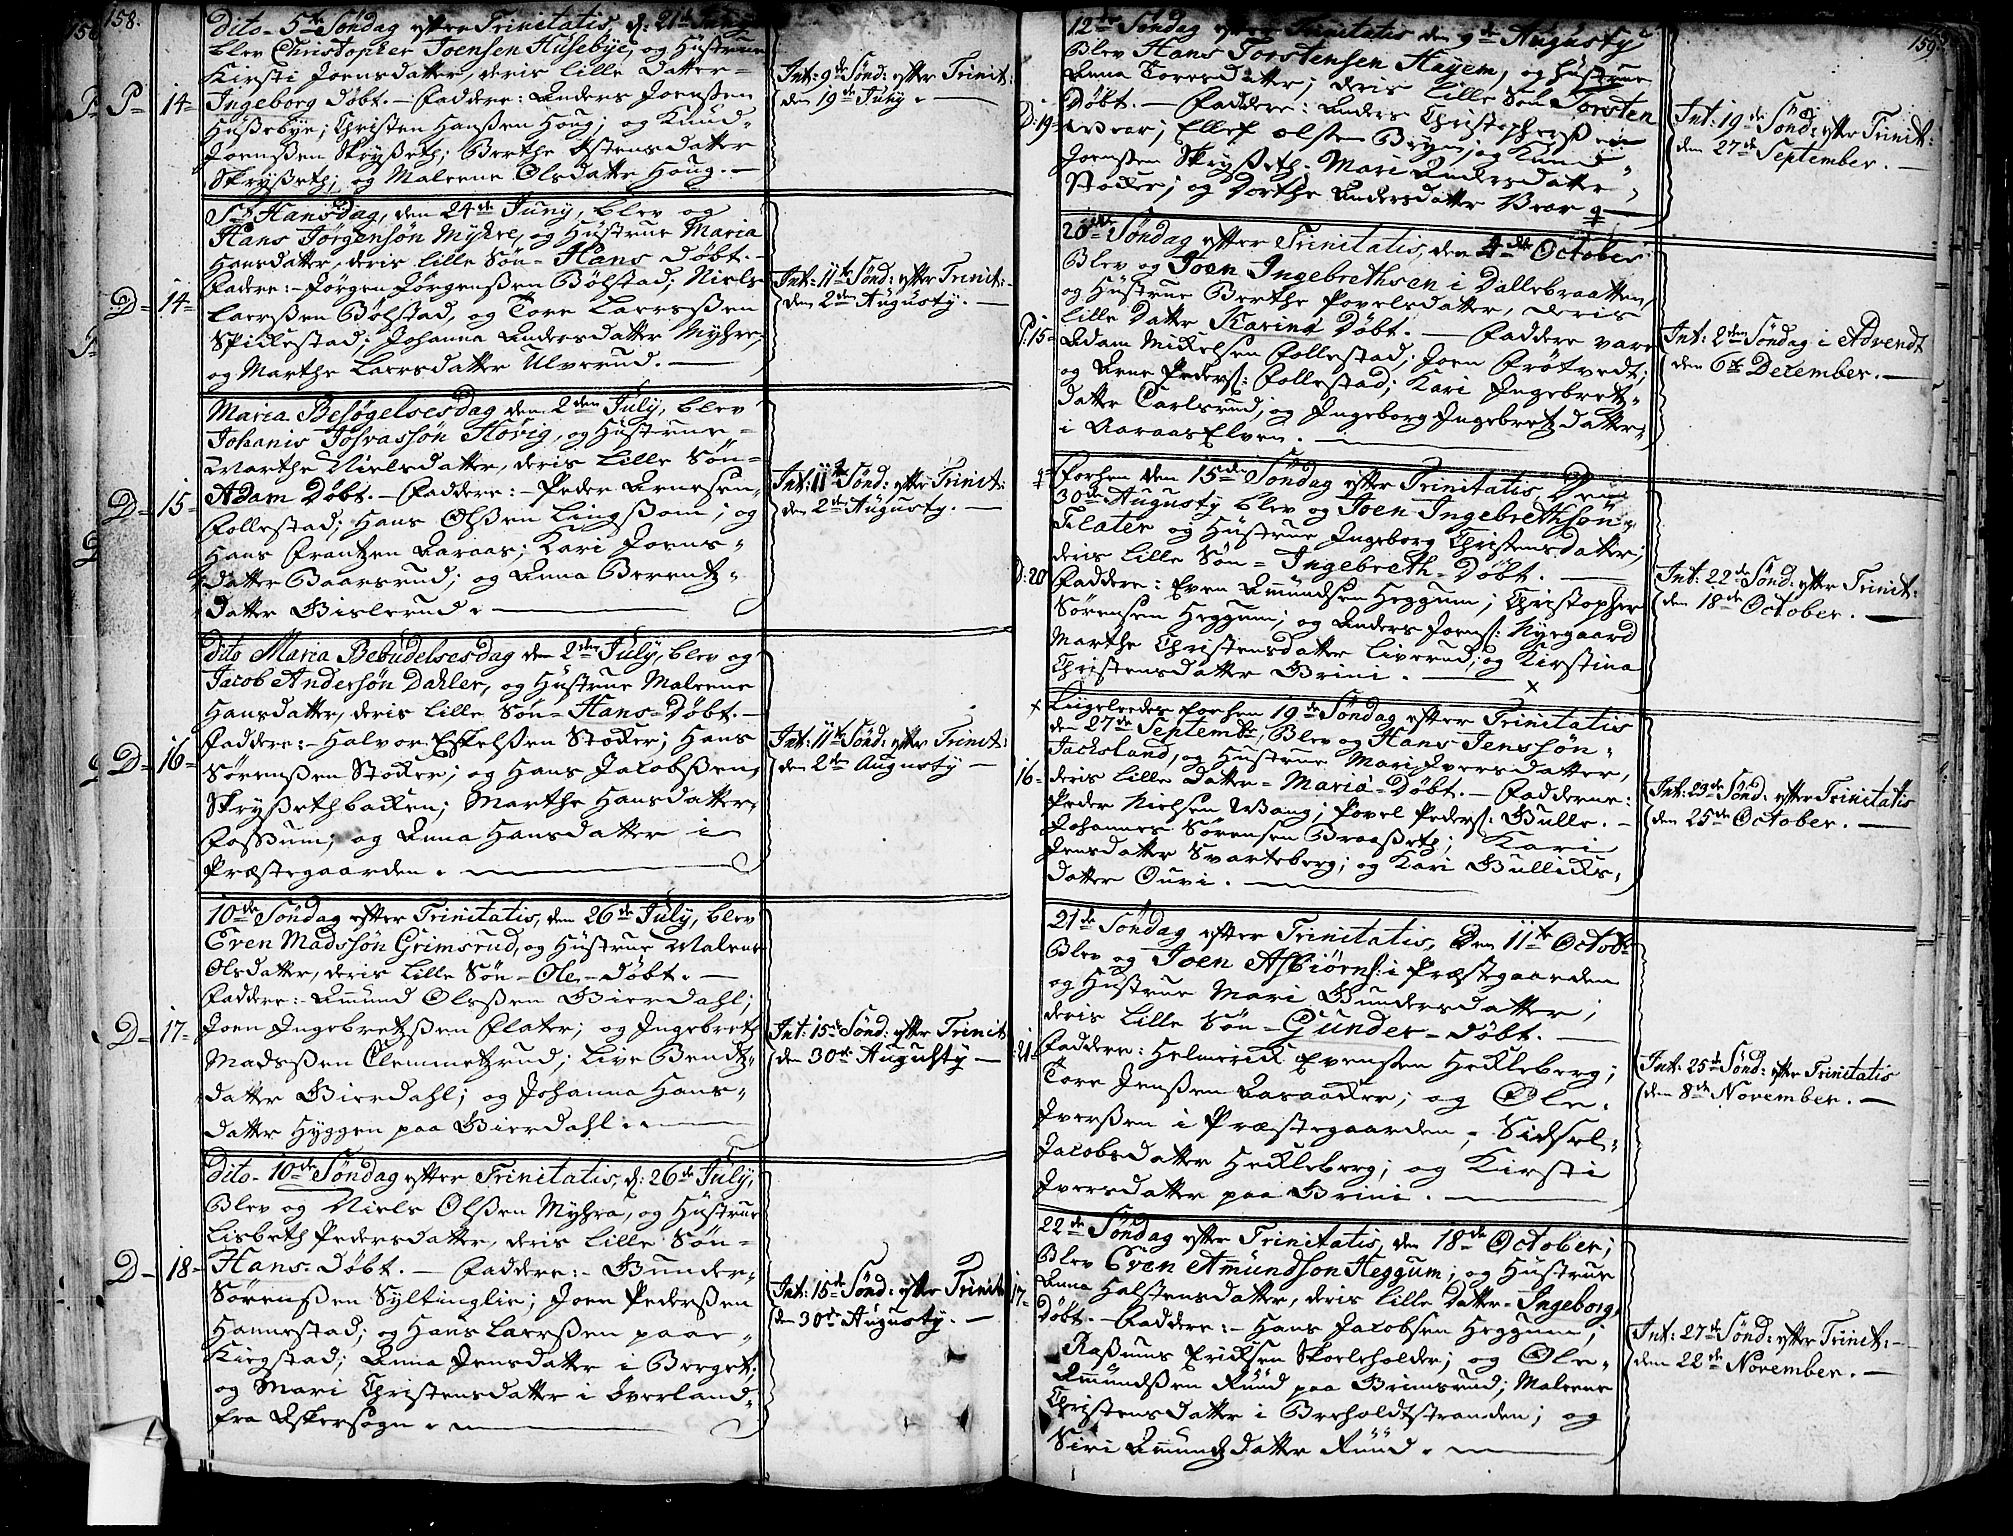 158.
Dito 5te Søndag efter Trinitatis, d: 21de Juny
blev Christopher Joensen Husebye, og Hüstrue
Kirsti Joensdatter, deris lille Datter=
P= 14= Ingeborg Døbt. — Faddere: Anders Joenssen
Hussebye; Christen Hanssen Houg; og Knud=
Joenssen Skrysseth; Berthe Ostensdatter
Skrysseth; og Maleene Olsdatter Houg. —
Int: 9de Sønd: efter Trinit:
den 19de July. —
St Hansdag, den 24de Juny, blev og
Hans Jørgensøn Myhre, og Hüstrue Maria
Hansdatter, deris lille Søn= Hans Døbt. —
D= 14= Fadere:- Jørgen Jørgenssen Bølstad; Niels
Larssen Bølstad, og Tore Larssen
Spickestad; Johanna Andersdatter Myhre;
og Marthe Larsdatter Ulverud. —
Int: 11te Sønd: efter Trinit:
den 2den Augusty. —
Maria Besøgelsesdag den 2den July, blev
Johanis Josvassøn Hovig, og Hüstrue=
Marthe Nielsdatter, deris lille Søn=
D= 15= Adam Døbt. — Faddere:- Peder Arnesen,
Follestad; Hans Olssen Lingssom; og
Hans Frantzen Aaraas; Kari Joens=
datter Baarsrud; og Anna Berentz=
datter Gislerud. —
Int: 11te Sønd: efter Trinit:
den 2de Augusty. —
Dito Maria Bebudelsesdag den 2den July, blev og
Jacob Andersøn Dahler, og Hüstrue Maleene
Hansdatter, deris lille Søn= Hans= Døbt. —
D= 16= Faddere:- Halvor Eskelssen Stocker; Hans
Sørenssen Stocker; og Hans Jacobssen,
Skryssethbacken; Marthe Hansdatter,
Fossum; og Anna Hansdatter i
Præstegaarden. —
Int: 11te Sønd: efter Trinit:
den 2den Augusty —
10de Søndag efter Trinitatis, den 26de July, blev
Even Madssøn Grimsrud, og Hüstrue Maleene
Olsdatter, deris lille Søn= Ole= Døbt. —
Faddere:- Amund Olssen Gierdahl;
D= 17= Joen Ingebretzssen Flater; og Ingebreth
Madssen Clemmetzrud; Live Bendtz=
datter Gierdahl; og Johanna Hans=
datter Hyggen paa Gierdahl. —
Int: 15de Sønd: efter Trinit
den 30te Augusty —
Dito 10de Søndag efter Trinitatis, d: 26de July,
Blev og Niels Olssen Myhra, og Hüstrue
Lisbeth Pedersdatter, deris lille Søn=
D= 18= Hans= Døbt. — Faddere:- Gunder=
Sørenssen Syltinglie; Joen Pederssen
Hannestad; og Hans Larssen paa
Kirgstad; Anna Jensdatter i Berget;
og Mari Christensdatter i Øverland
fra Askersogn. —
Int: 15de Sønd: efter Trinit
d= 30te Augusty. —
159.
12te Søndag efter Trinitatis den 9de Augusty,
Blev Hans Torstensen Hayem, og Hüstrue
Anna Toresdatter; deris lille Søn Torsten
D: 19= Døbt. — Faddere: Anders Christopherssen
Wear; Ellef Olsen Bryn; og Knud
Joenssen Skrysseth; Mari Andersdatter
Stocker; og Dorthe Andersdatter Wear —
Int: 19de Sønd: efter Trinit:
den 27de September. —
20de Søndag efter Trinitatis, den 4de October
Blev og Joen Ingebrethsen i Dallebraatten,
og Hüstrue Berthe Povelsdatter, deris
lille Datter Karina Døbt. — Faddere vare
P: 15= Adam Mickelsen Follestad; Joen Frøtvedt;
og Arne Peders: Follestad; Kari Ingebretz=
datter Carlsrud; og Ingeborg Ingebretzdatter
i Aaraas Elven. —
Int: 2den Søndag i Advendt
den 6te December. —
Forhen den 15de Søndag efter Trinitatis, Den
30te Augusty blev og Joen Ingebrethsøn
Flater og Hüstrue Ingeborg Christensdatter;
deris lille Søn= Ingebreth= Døbt. —
D: 20 Faddere: Even Amundsen Heggum; Christopher
Sørensen Heggum; og Anders Joens: Nyegaard
Marthe Christensdatter Liverud; og Kirstina
Christensdatter Brini. —
Int: 22de Sønd: efter Trinit:
den 18de October. —
x Liigeleedes forhen 19de Søndag efter Trinitatis
den 27de Septembr; Blev og Hans Jenssøn
Jacksland, og Hüstrue Mari Iversdatter,
16= deris lille datter= Maria= Døbt. — Fadderne:
Peder Nielsen Wang; Povel Peders: Gulle. —
Johannes Sørensen Braasset; Kari
Jensdatter Svarteberg; og Kari Gullicks=
datter Ouri. —
Int: 23de Sønd: efter Trinitatis
den 25de October. —
21de Søndag efter Trinitatis, Den 11te Octobr
Blev og Joen Asbiørns: i Præstegaarden
og Hüstrue Mari Gundersdatter;
deris lille Søn= Gunder= Døbt. —
21= Faddere: Helmerick Evenssen Heckleberg;
Tore Jenssen Aasacker; og Ole
Iverssen i Præstegaarden, Sidsel
Jacobsdatter Heckleberg; og Kirsti
Iversdatter paa Brini. —
Int: 25de Sønd: efter Trinitatis
den 8de November. —
22de Søndag efter Trinitatis, den 18de October;
Blev Even Amundson Heggum; og Hustrue
Anna Halstensdatter, deris lille datter= Ingeborg,
17= Døbt. — Faddere:- Hans Jacobsen Heggum;
Rassmus Ericksen Skoleholder; og Ole=
Amundssen Ruud paa Grimsrud; Maleene
Christensdatter i Gerholdtstranden; og
Siri Amundzdatter Ruud. —
Int: 27de Sønd: efter Trinit:
den 22de November. —